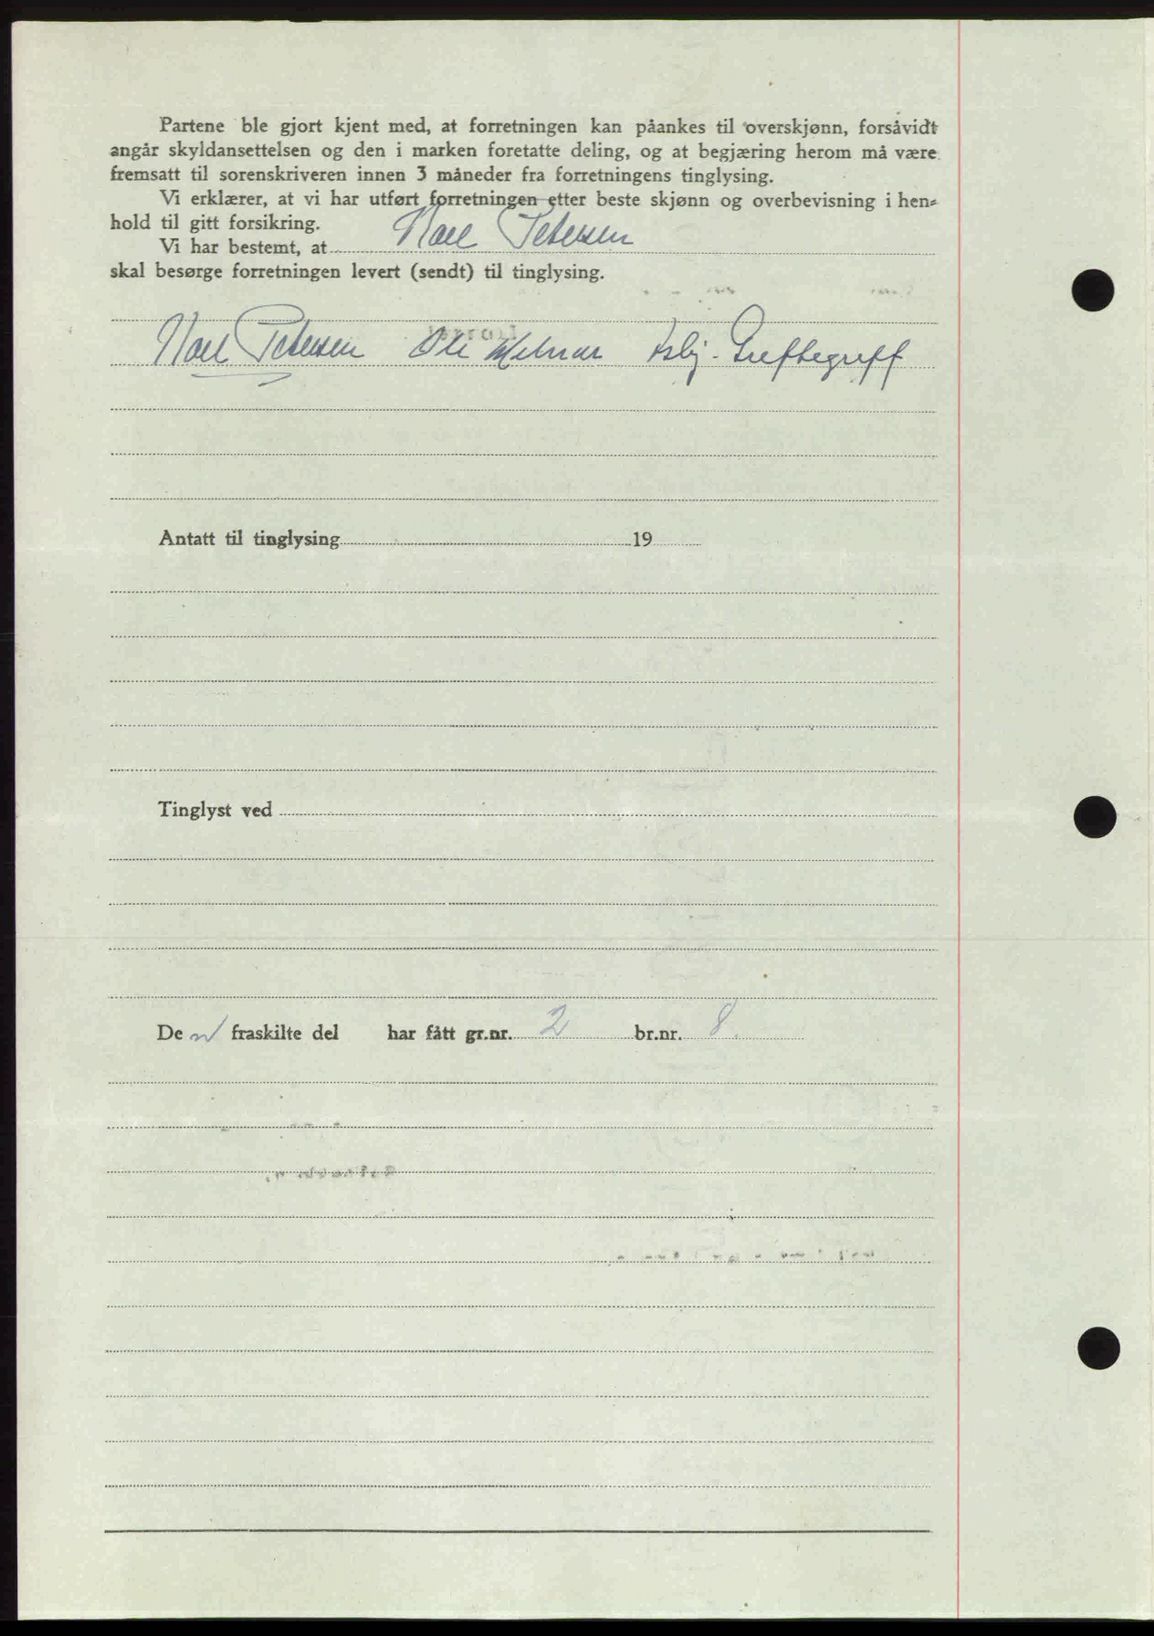 Partene ble gjort kjent med, at forretningen kan påankes til overskjønn, forsåvidt
angår skyldansettelsen og den i marken foretatte deling, og at begjæring herom må være
fremsatt til sorenskriveren innen 3 måneder fra forretningens tinglysing.
Vi erklærer, at vi har utført forretningen etter beste skjønn og overbevisning i hen-
hold til gitt forsikring.
Vi har bestemt, at Petersen
skal besørge forretningen levert (sendt) til tinglysing.
Petersen Ole
Antatt til tinglysing 19
Tinglyst ved
De n fraskilte del har fått gr.nr. 2 br.nr. 8.